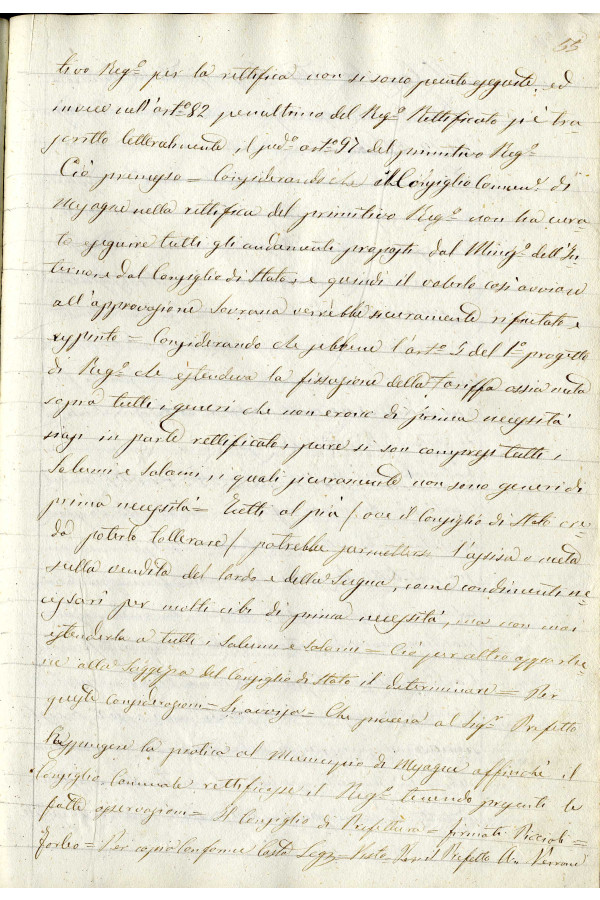 55
tivo Reg.º per la rettifica non si sono punto eseguite, ed
invece nell'art.º 82 penultimo del Reg.º Rettificato si è tra
scritto letteralmente il sud.º art.º 97 del primitivo Reg.º
Ciò premesso = Considerando che il Consiglio Comun.e di
Mesagne nella rettifica del primitivo Reg.º non ha cura
to eseguire tutti gli andamenti proposti dal Ming.º dell'In
terno e dal Consiglio di Stato, e quindi il volerlo così avviare
all'approvazione Sovrana verrebbe sicuramente rifiutato e
respinto = Considerando che sebbene l'art.º 5 del 1.º progetto
di Reg.º che estendeva la fissazione della Tariffa ossia meta
sopra tutti i generi che non erano di prima necessità
siasi in parte rettificato, pure si son compresi tutti i
salumi e salami, i quali sicuramente non sono generi di
prima necessità = Tutti al più / ove il Consiglio di Stato cre
da poterlo tollerare / potrebbe permettersi l'assisa o meta
sulla vendita del lardo e della Sugna, come condimenti ne
cessarî per molti cibi di prima necessità, ma non mai
estenderla a tutti i salumi e salami = Ciò per altro apparte
ne alla Saggezza del Consiglio di Stato il determinare = Per
queste considerazioni = Si avvisa = Che piaccia al Sig.r Prefetto
Respingere la pratica al Municipio di Mesagne affinchè il
Consiglio Comunale rettificasse il Reg.º tenendo presenti le
fatte osservazioni = Il Consiglio di Prefettura = firmati Piccioli =
Forleo = Per copia conforme Costa Segr. = Visto = Per il Prefetto A. Verrone